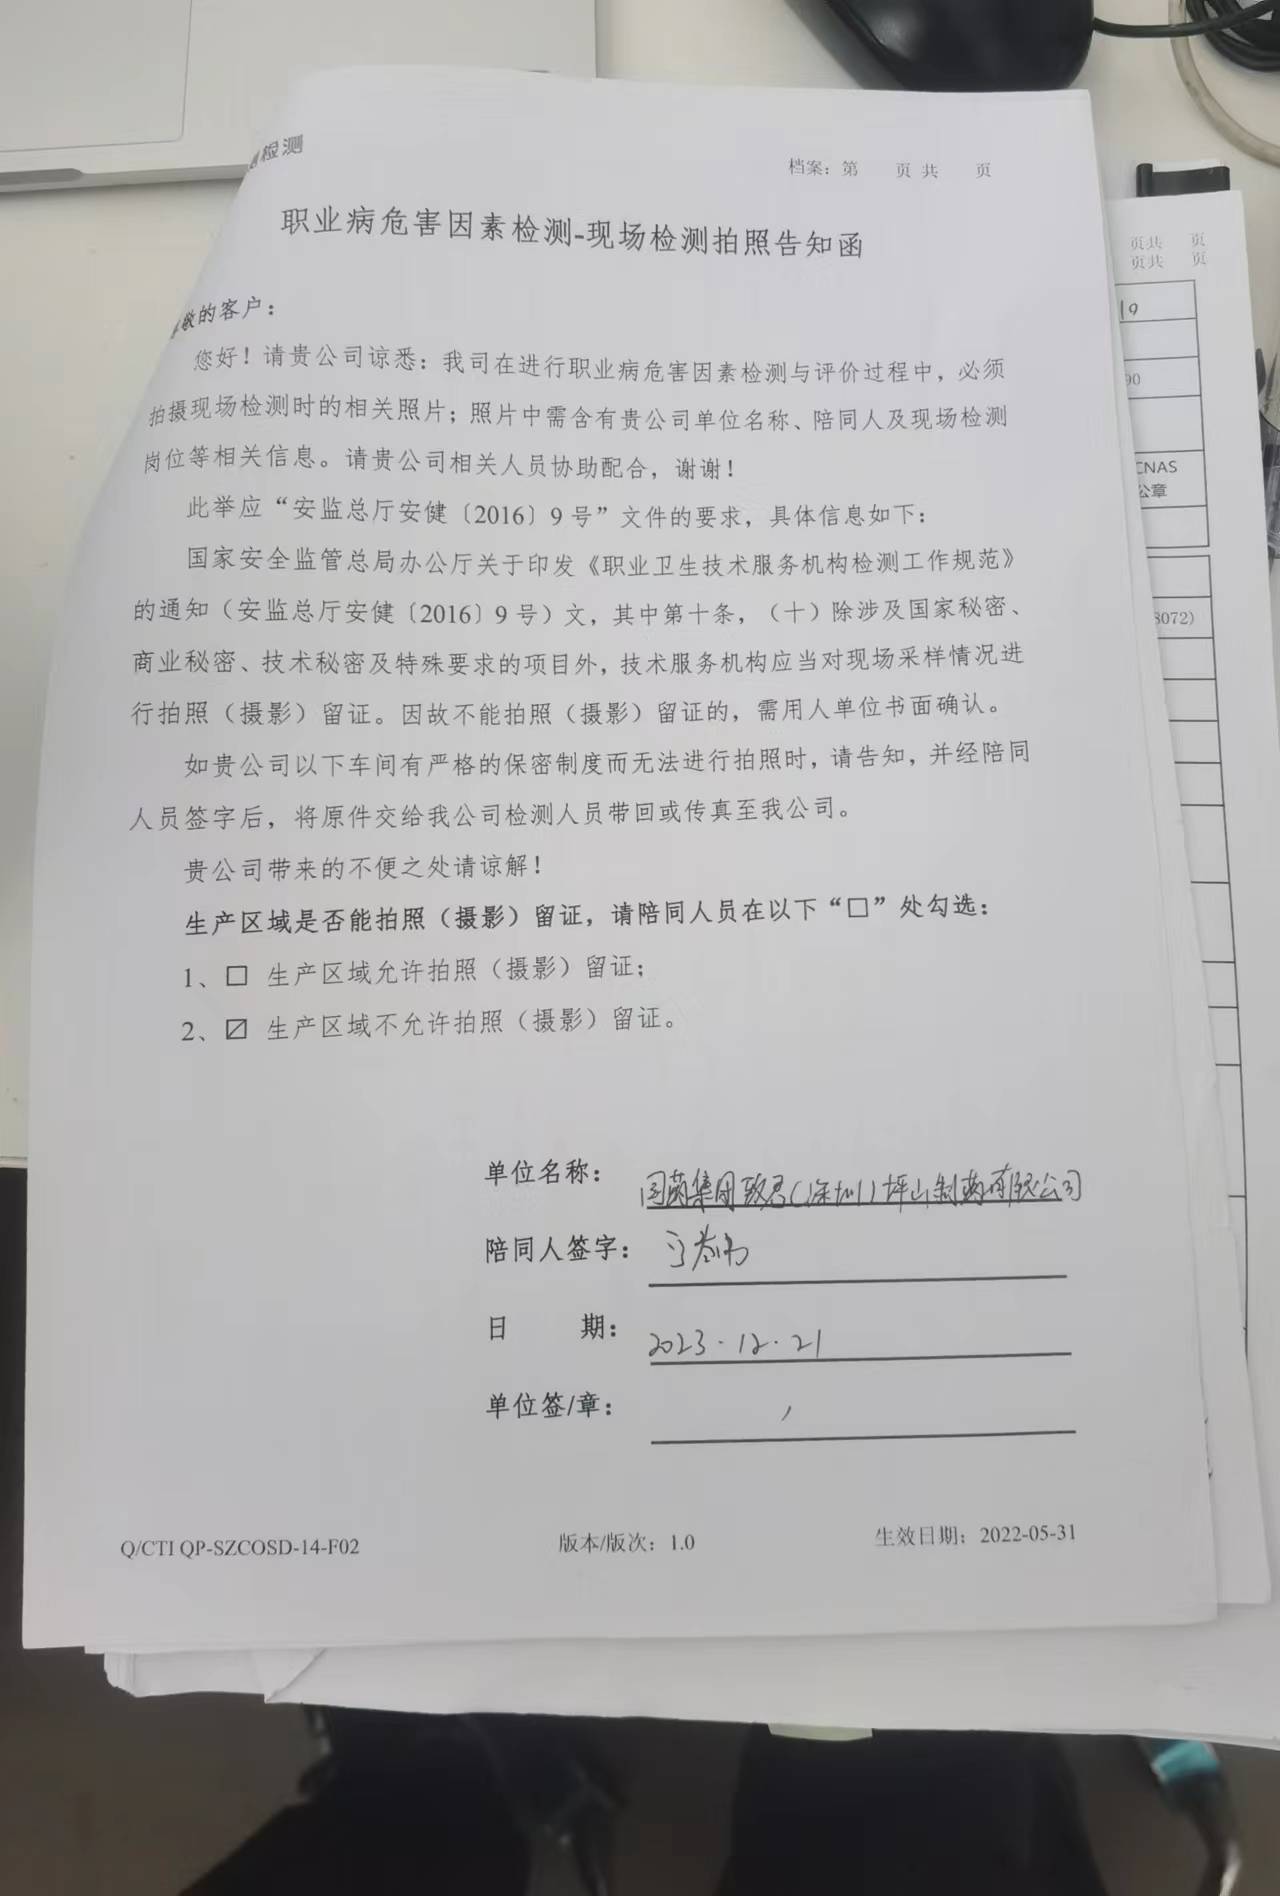 检测
档案：第 页 共 页
职业病危害因素检测-现场检测拍照告知函
敬的客户：
您好！请贵公司谅悉：我司在进行职业病危害因素检测与评价过程中，必须
拍摄现场检测时的相关照片；照片中需含有贵公司单位名称、陪同人及现场检测
岗位等相关信息。请贵公司相关人员协助配合，谢谢！
此举应“安监总厅安健〔2016〕9号”文件的要求，具体信息如下：
国家安全监管总局办公厅关于印发《职业卫生技术服务机构检测工作规范》
的通知（安监总厅安健〔2016〕9号）文，其中第十条，（十）除涉及国家秘密、
商业秘密、技术秘密及特殊要求的项目外，技术服务机构应当对现场采样情况进
行拍照（摄影）留证。因故不能拍照（摄影）留证的，需用人单位书面确认。
如贵公司以下车间有严格的保密制度而无法进行拍照时，请告知，并经陪同
人员签字后，将原件交给我公司检测人员带回或传真至我公司。
贵公司带来的不便之处请谅解！
生产区域是否能拍照（摄影）留证，请陪同人员在以下“□”处勾选：
1、□ 生产区域允许拍照（摄影）留证；
2、☑ 生产区域不允许拍照（摄影）留证。
单位名称：国药集团致君(深圳)坪山制药有限公司
陪同人签字：
日 期：2023.12.21
单位签/章：
Q/CTI QP-SZCOSD-14-F02 版本/版次：1.0 生效日期：2022-05-31
页共 页
页共 页
19
90
CNAS
公章
8072)